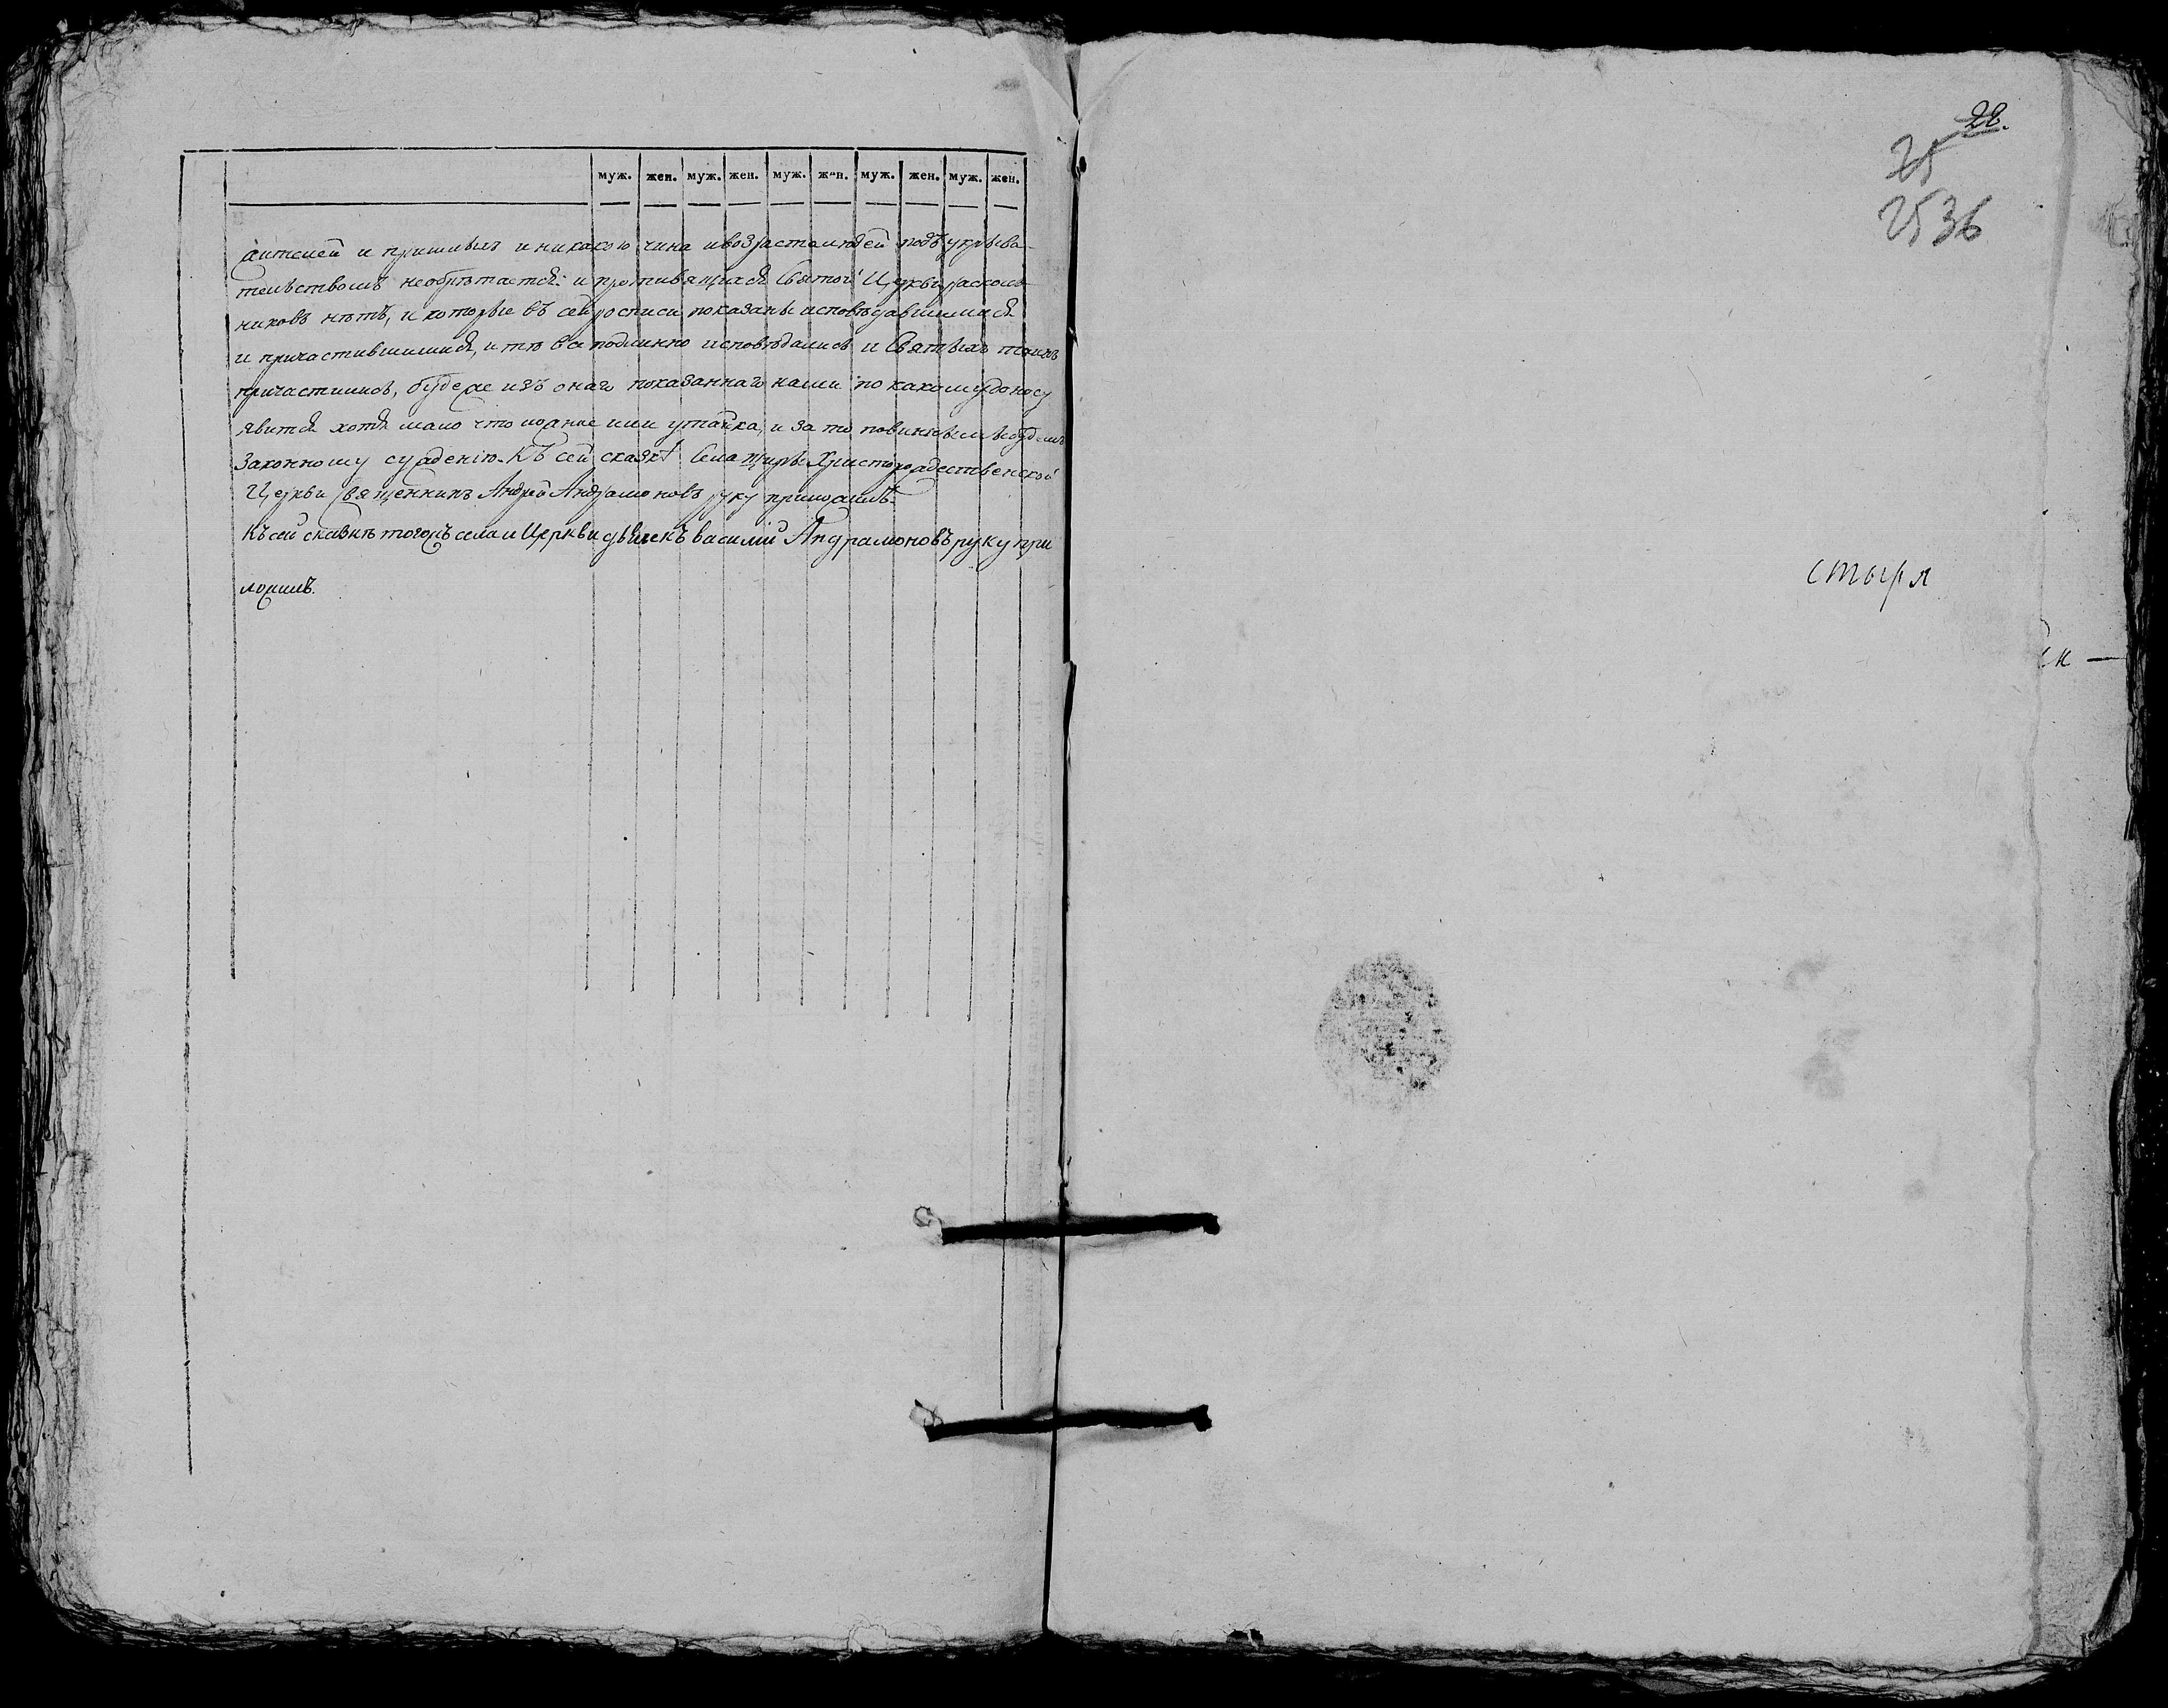 муж. жен. муж. жен. муж. жен. муж. жен. муж. жен.
жителей и пришлых и никакого чина и возраста людей подъ укрыва-
тельствомъ необрѣтается: и противящихся Святой Церкви расколь-
никовъ нѣтъ, и которые въ сей росписи показаны исповѣдавшимися
и причастившимися, и тѣ все подлинно исповѣдались и Святыхъ таинъ
причастились, буде же изъ онаго показаннаго нами по какому доносу
явится хотя мало что ложное или утайка, и за то повинны мы будемъ
Законному сужденію. Къ сей сказкѣ Села Христорождественской
Церкви священникъ Андрей Андрамоновъ руку приложилъ.
Къ сей сказкѣ тогожъ села и Церкви василий Андрамоновъ руку при
ложилъ.
28.
25
2536